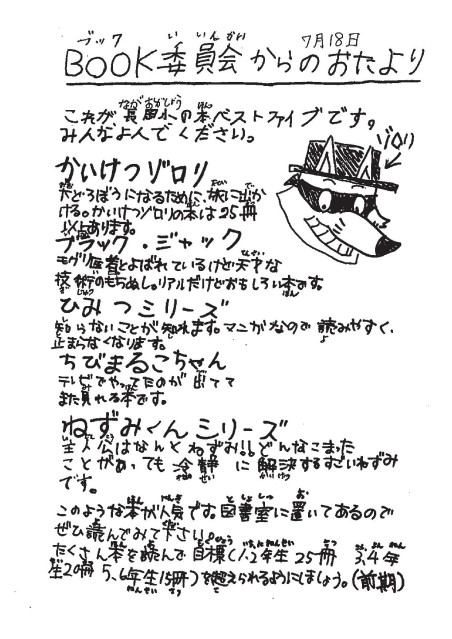 ブック いいんかい 7月18日
BOOK委員会からのおたより
ながおかしょう ほん
これが、長岡小の本ベストファイブです。
みんなよんでください。
ゾロリ
かいけつゾロリ
大どろぼうになるために、旅に出か
ける。かいけつゾロリの本は25冊
以上あります。
ブラック・ジャック
モグリ医者とよばれているけど天才な
技術のもちぬし。リアルだけどおもしろい本です。
ひみつシリーズ
知らないことが知れます。マンガなので読みやすく、
止まらなくなります。
ちびまるこちゃん
テレビでやってたのが出てて
また見れる本です。
ねずみくんシリーズ
主人公はなんとねずみ!!どんなこまった
ことがあっても冷静に解決するすごいねずみ
です。
このような本が人気です。図書室に置いてあるので
ぜひ読んでみて下さい。
たくさん本を読んで目標(1、2年生25冊 3、4年
生20冊 5、6年生15冊)を超えられるようにしましょう。(前期)